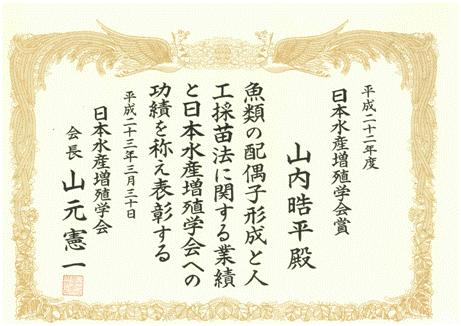 平成二十二年度
日本水産増殖学会賞
山内晧平殿
魚類の配偶子形成と人
工採苗法に関する業績
と日本水産増殖学会への
功績を称え表彰する
平成二十三年三月三十日
日本水産増殖学会
会長 山元憲一